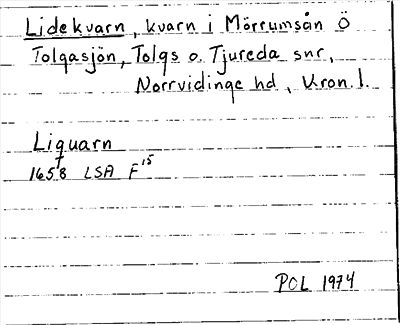 Lidekvarn, kvarn i Mörrumsån Ö
Tolgasjön, Tolgs o. Tjureda snr,
Norrvidinge hd, Kron. l.
Liquarn
1658 LSA F 15
POL 1974